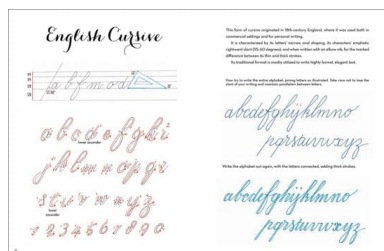 English Cursive
a b f m o d
a b c d e f g h i
j k l m n o p q r
s t u v w x y z
1 2 3 4 5 6 7 8 9 0
This form of cursive originated in 18th-century England, where it was used both in
commercial settings and for personal writing.
It is characterized by its letters' narrow, oval shaping, its characters' emphatic
rightward slant (55-60 degrees), and when written with an allowe nib, for the marked
difference between its thin and thick strokes.
Its traditional format is mostly utilized to write highly formal, elegant text.
Now try to write the entire alphabet, joining letters as illustrated. Take care not to lose the
slant of your writing and maintain parallelism between letters.
abcdefghijklmno
pqrstuvwxyz
Write the alphabet out again, with the letters connected, adding thick strokes.
abcdefghijklmno
pqrstuvwxyz